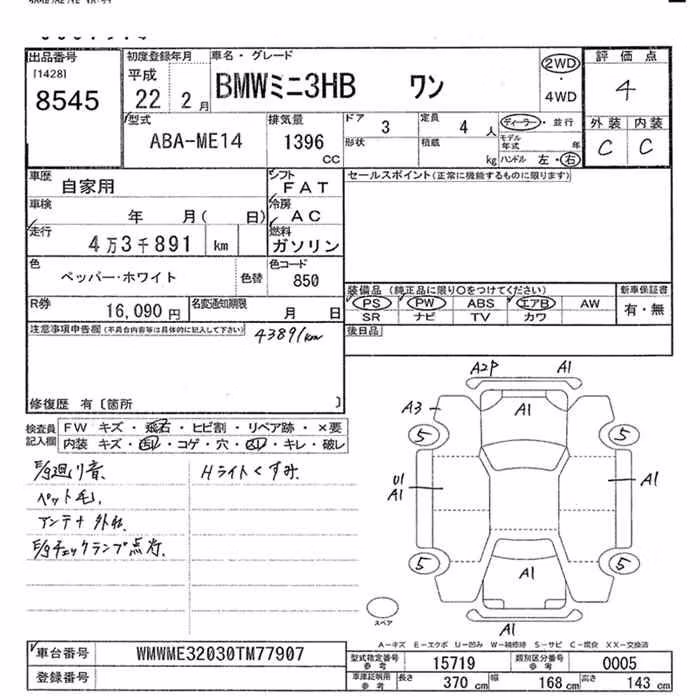 出品番号
[1428]
8545
初度登録年月
平成
22 2 月
車名・グレード
BMWミニ3HB ワン
2WD
・
4WD
評価点
4
外装 内装
C C
型式
ABA-ME14
排気量
1396
CC
ドア 3
定員 4 人
形状
積載 kg
ディーラー・並行
モデル年式 年
ハンドル 左・右
車歴
自家用
シフト
FAT
セールスポイント(正常に機能するものに限ります)
車検
年 月( 日)
冷房
AC
走行
4万3千891 km
燃料
ガソリン
色
ペッパー・ホワイト
色替
色コード
850
装備品 (純正品に限り○をつけてください)
PS PW ABS エアB AW
SR ナビ TV カワ
新車保証書
有・無
R券
16,090 円
名変通知期限
月 日
後日品
注意事項申告欄(不具合内容等は具体的に記入して下さい)
43891km
修復歴 有〔箇所 〕
検査員
記入欄
FW キズ・飛石・ヒビ割・リペア跡・×要
内装 キズ・汚れ・コゲ・穴・スレ・キレ・破レ
E/g廻り音.
Hライトくすみ.
ペット毛.
アンテナ外れ.
E/gチェックランプ点灯.
A2P A1
A3 A1
5 5
U1
A1
A1
5 5
A1
A1
スペア
A-キズ E-エクボ U-凹み W-補修跡 S-サビ C-腐食 XX-交換済
車台番号
WMWME32030TM77907
登録番号
型式指定番号
参考
15719
類別区分番号
参考
0005
車庫証明用
参考
長さ 370 cm 幅 168 cm 高さ 143 cm